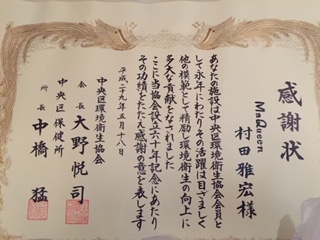 感謝状
MaQuen
村田雅宏様
あなたの施設は中央区環境衛生協会会員と
して永年にわたりその活躍は目ざましく
他の模範として精励し環境衛生の向上に
多大な貢献をなされました
ここに当協会設立六十年記念にあたり
その功績をたたえ感謝の意を表します
平成二十九年五月十八日
中央区環境衛生協会
会長 大野悦司
中央区保健所
所長 中橋猛